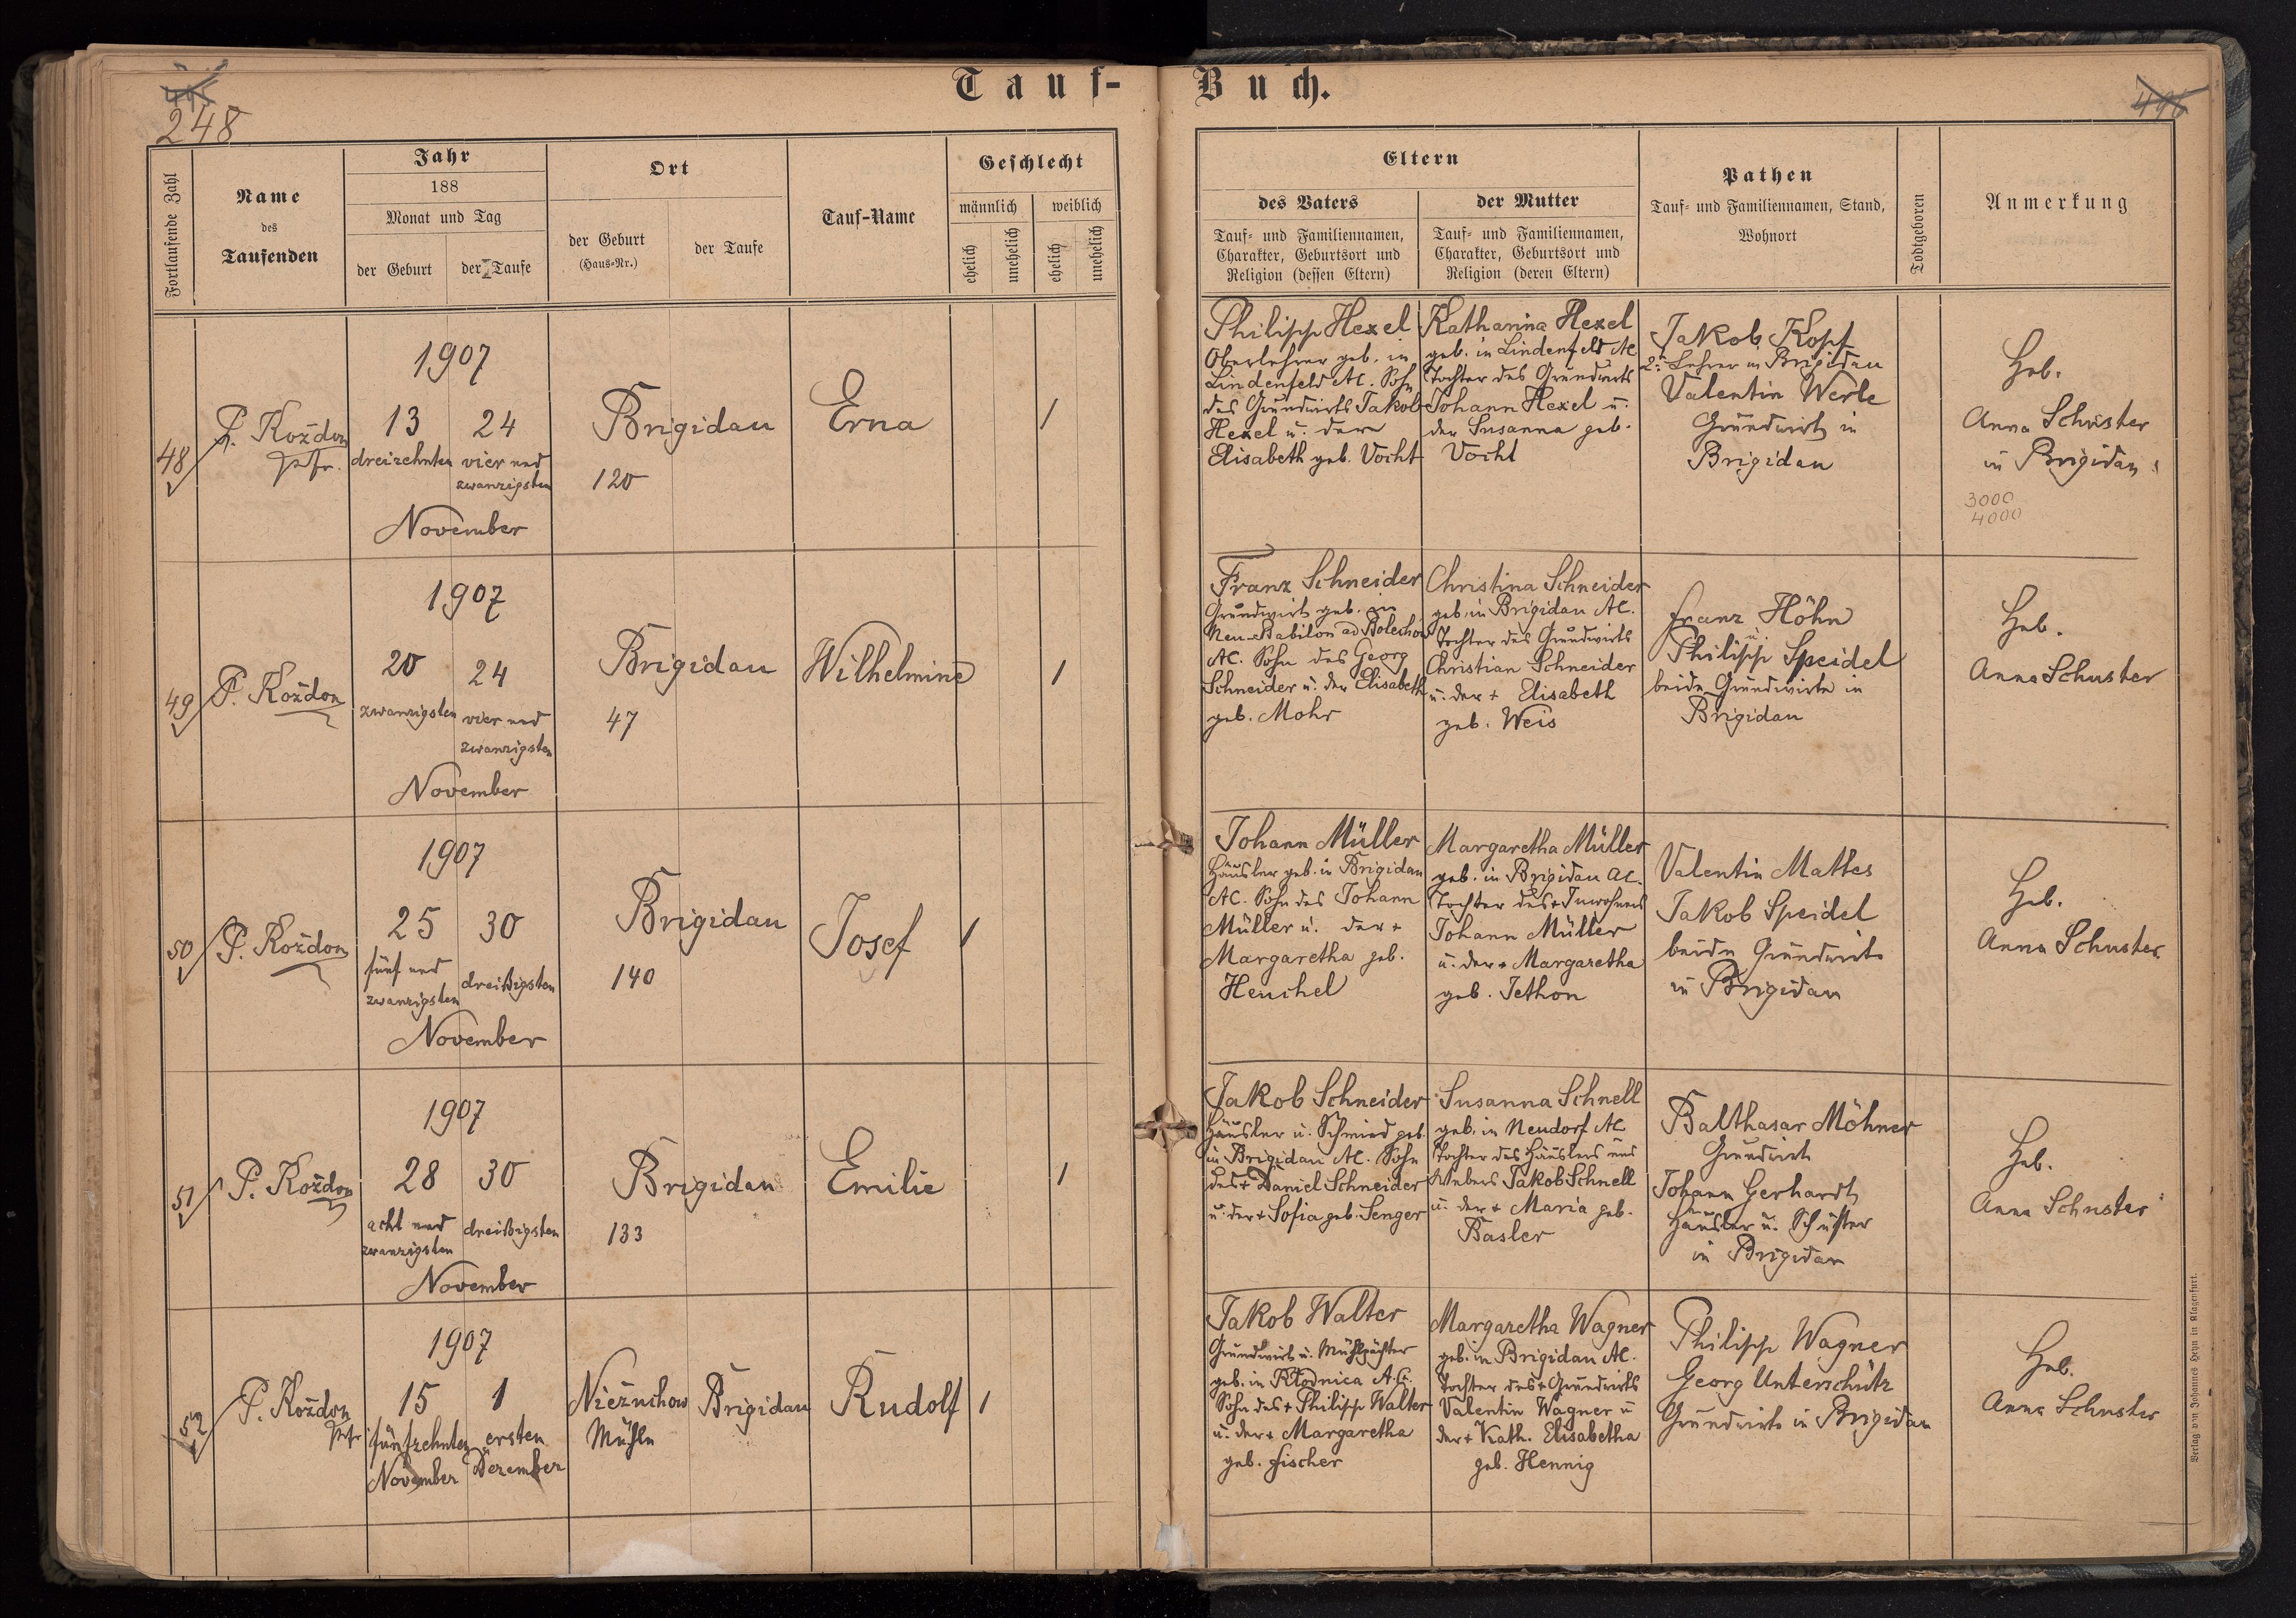 Tauf-Buch.
248
496
Fortlaufende Zahl
Name
des
Taufenden
Jahr
188
Monat und Tag
der Geburt
der Taufe
Ort
der Geburt
(Haus-Nr.)
der Taufe
Tauf-Name
Geschlecht
männlich
weiblich
ehelich
unehelich
ehelich
unehelich
Eltern
des Vaters
Tauf- und Familiennamen,
Charakter, Geburtsort und
Religion (dessen Eltern)
der Mutter
Tauf- und Familiennamen,
Charakter, Geburtsort und
Religion (deren Eltern)
Pathen
Tauf- und Familiennamen, Stand,
Wohnort
Todtgeboren
Anmerkung
48
P. Koždon
Pfr.
1907
13
dreizehnten
24
vier und
zwanzigsten
November
Brigidau
120
Erna
1
Philipp Hexel
Oberlehrer geb. in
Lindenfeld AC. Sohn
des Grundwirts Jakob
Hexel u. der
Elisabeth geb. Vocht
Katharina Hexel
geb. in Lindenfeld AC
Tochter des Grundwirts
Johann Hexel u.
der Susanna geb.
Vocht
Jakob Kopf
2. Lehrer in Brigidau
Valentin Werle
Grundwirt in
Brigidau
Heb.
Anna Schuster
in Brigidau
3000
4000
49
P. Koždon
1907
20
zwanzigsten
24
vier und
zwanzigsten
November
Brigidau
47
Wilhelmine
1
Franz Schneider
Grundwirt geb. in
Neu-Babilon ad Bolechow
AC. Sohn des Georg
Schneider u. der Elisabeth
geb. Mohr
Christina Schneider
geb. in Brigidau AC.
Tochter des Grundwirts
Christian Schneider
u. der + Elisabeth
geb. Weis
Franz Höhn
u.
Philipp Speidel
beide Grundwirte in
Brigidau
Heb.
Anna Schuster
50
P. Koždon
1907
25
fünf und
zwanzigsten
30
dreißigsten
November
Brigidau
140
Josef
1
Johann Müller
Häusler geb. in Brigidau
AC. Sohn des Johann
Müller u. der +
Margaretha geb.
Heuchel
Margaretha Müller
geb. in Brigidau AC.
Tochter des + Inwohners
Johann Müller
u. der + Margaretha
geb. Jethon
Valentin Mattes
Jakob Speidel
beide Grundwirte
in Brigidau
Heb.
Anna Schuster
51
P. Koždon
1907
28
acht und
zwanzigsten
30
dreißigsten
November
Brigidau
133
Emilie
1
Jakob Schneider
Häusler u. Schmied geb.
in Brigidau AC. Sohn
des + Daniel Schneider
u. der + Sofia geb. Senger
Susanna Schnell
geb. in Neudorf AC
Tochter des Häuslers und
Webers Jakob Schnell
u. der + Maria geb.
Basler
Balthasar Möhner
Grundwirt
Johann Gerhardt
Häusler u. Schuster
in Brigidau
Heb.
Anna Schuster
52
P. Koždon
Pfr
1907
15
fünfzehnten
November
1
ersten
Dezember
Niežuchow
Mühle
Brigidau
Rudolf
1
Jakob Walter
Grundwirt u. Mühlpächter
geb. in Kłodnica A.C.
Sohn des + Philipp Walter
u. der + Margaretha
geb. Fischer
Margaretha Wagner
geb. in Brigidau AC.
Tochter des + Grundwirts
Valentin Wagner u
der + Kath. Elisabetha
geb. Hennig
Philipp Wagner
Georg Unterschütz
Grundwirte in Brigidau
Heb.
Anna Schuster
Verlag von Johannes Heyn in Klagenfurt.